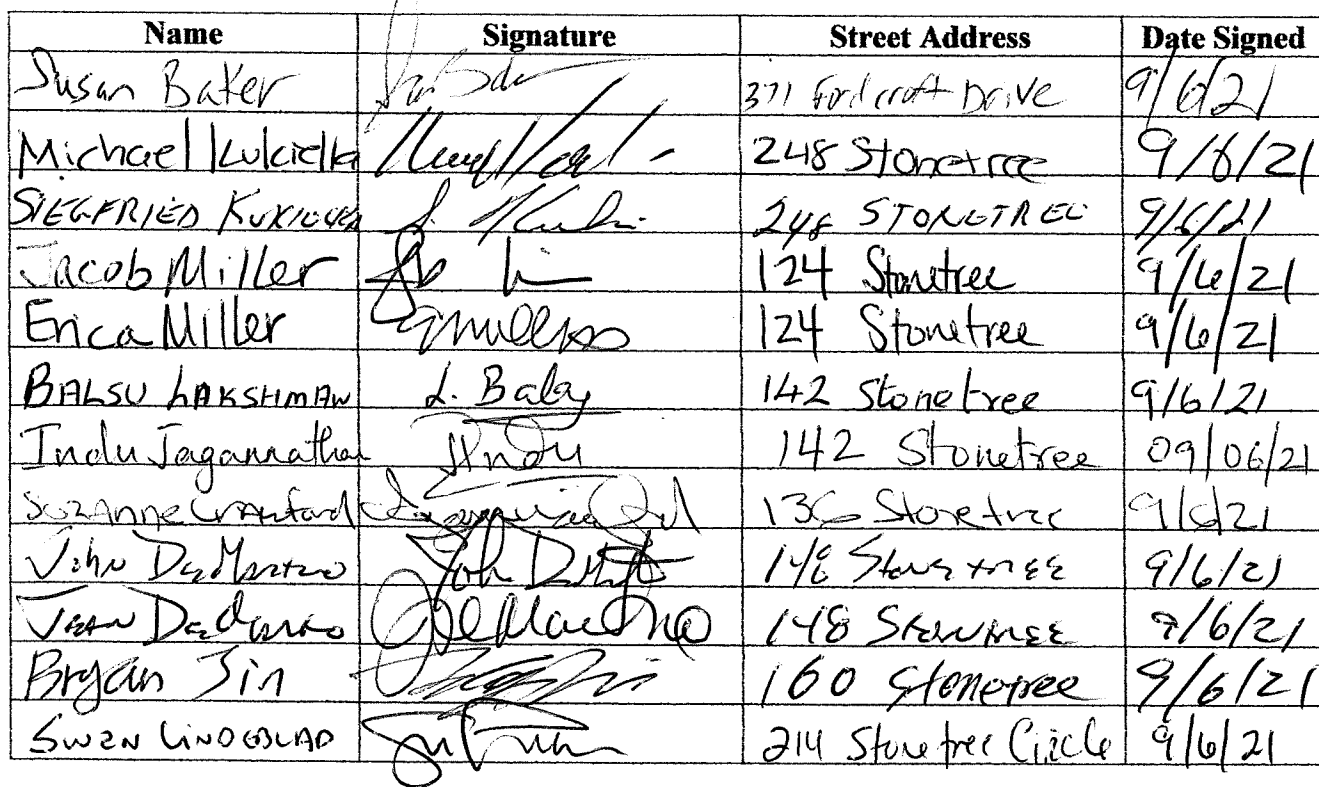 Name Signature Street Address Date Signed
Susan Baker 371 Fordcroft Drive 9/6/21
Michael Kukielka 248 Stonetree 9/6/21
SIEGFRIED 248 STONETREE 9/6/21
Jacob Miller 124 Stonetree 9/6/21
Erica Miller 124 Stonetree 9/6/21
BALSU LAKSHMAN L. Balsy 142 Stonetree 9/6/21
Indu Jagannathan Indu 142 Stonetree 09/06/21
SUZANNE Crawford 136 Stonetree 9/6/21
John DeMartino John 148 Stonetree 9/6/21
Jean DeMartino DeMartino 148 Stonetree 9/6/21
Bryan Jin 160 Stonetree 9/6/21
SWEN LINDEBLAD 214 Stonetree Circle 9/6/21